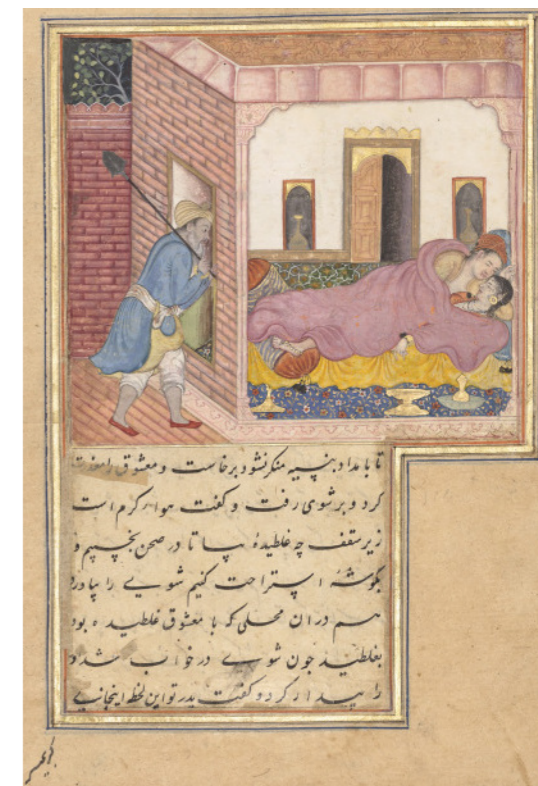 تا بامداد بنبیسه منکر نشود برخاست و معشوق را معذرت
کرد و بر شوی رفت و گفت هوا گرم است
زیر سقف چه غلطیدهٔ بیا تا در صحن بخسپیم و
بگوشهٔ استراحت کنیم شویے را بیاورد
هم دران محلی که با معشوق غلطیده بود
بغلطید چون شویے در خواب شد
را بیدار کرد و گفت پدر تو این لحظه اینجا